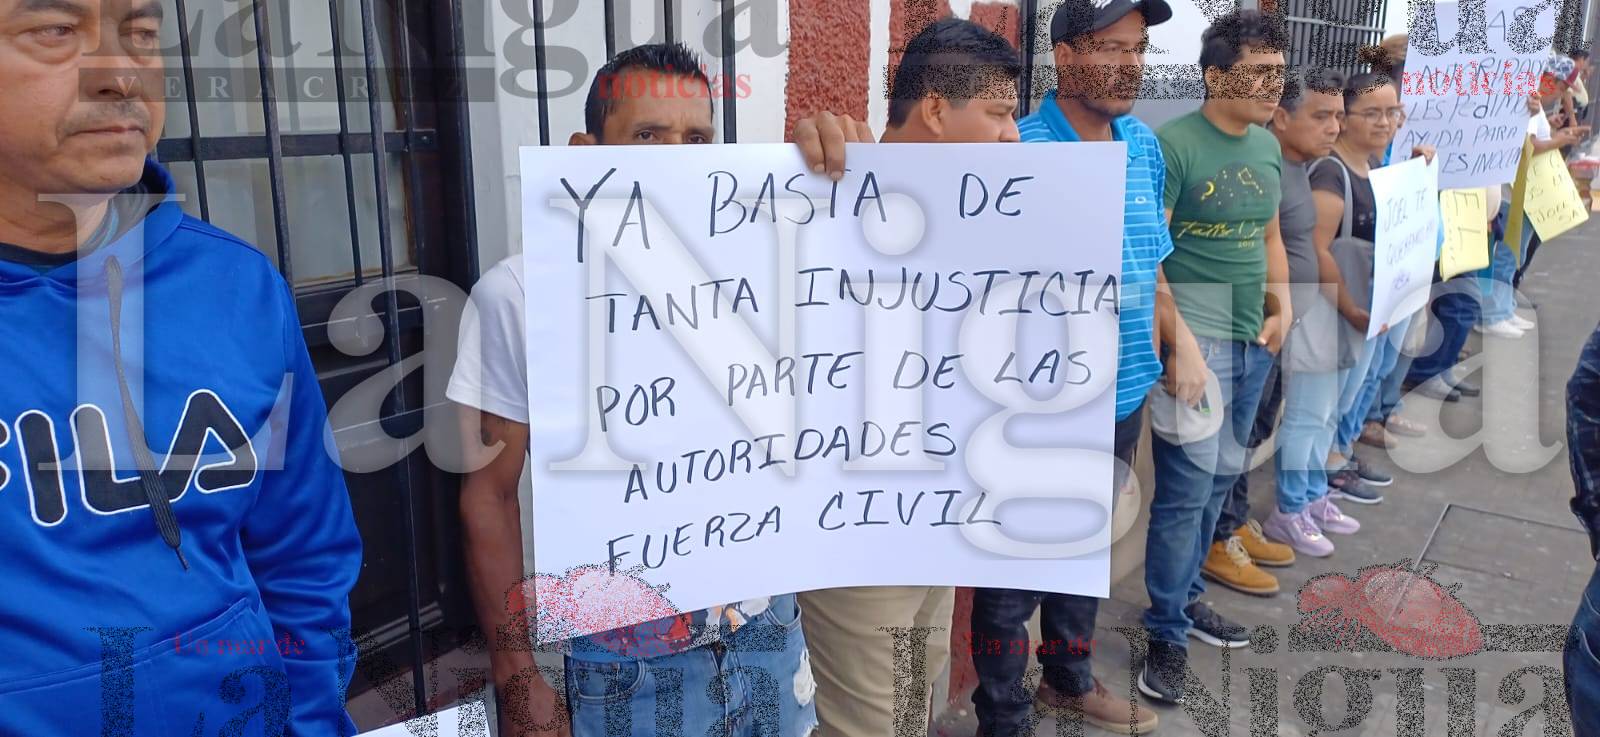 La Nigua
VERACRUZ
noticias
noticias
YA BASTA DE
TANTA INJUSTICIA
POR PARTE DE LAS
AUTORIDADES
FUERZA CIVIL
La Nigua
FILA
AYUDA PARA
JOEL TE
JOEL
Un mar de
La Nigua
Un mar de
La Nigua